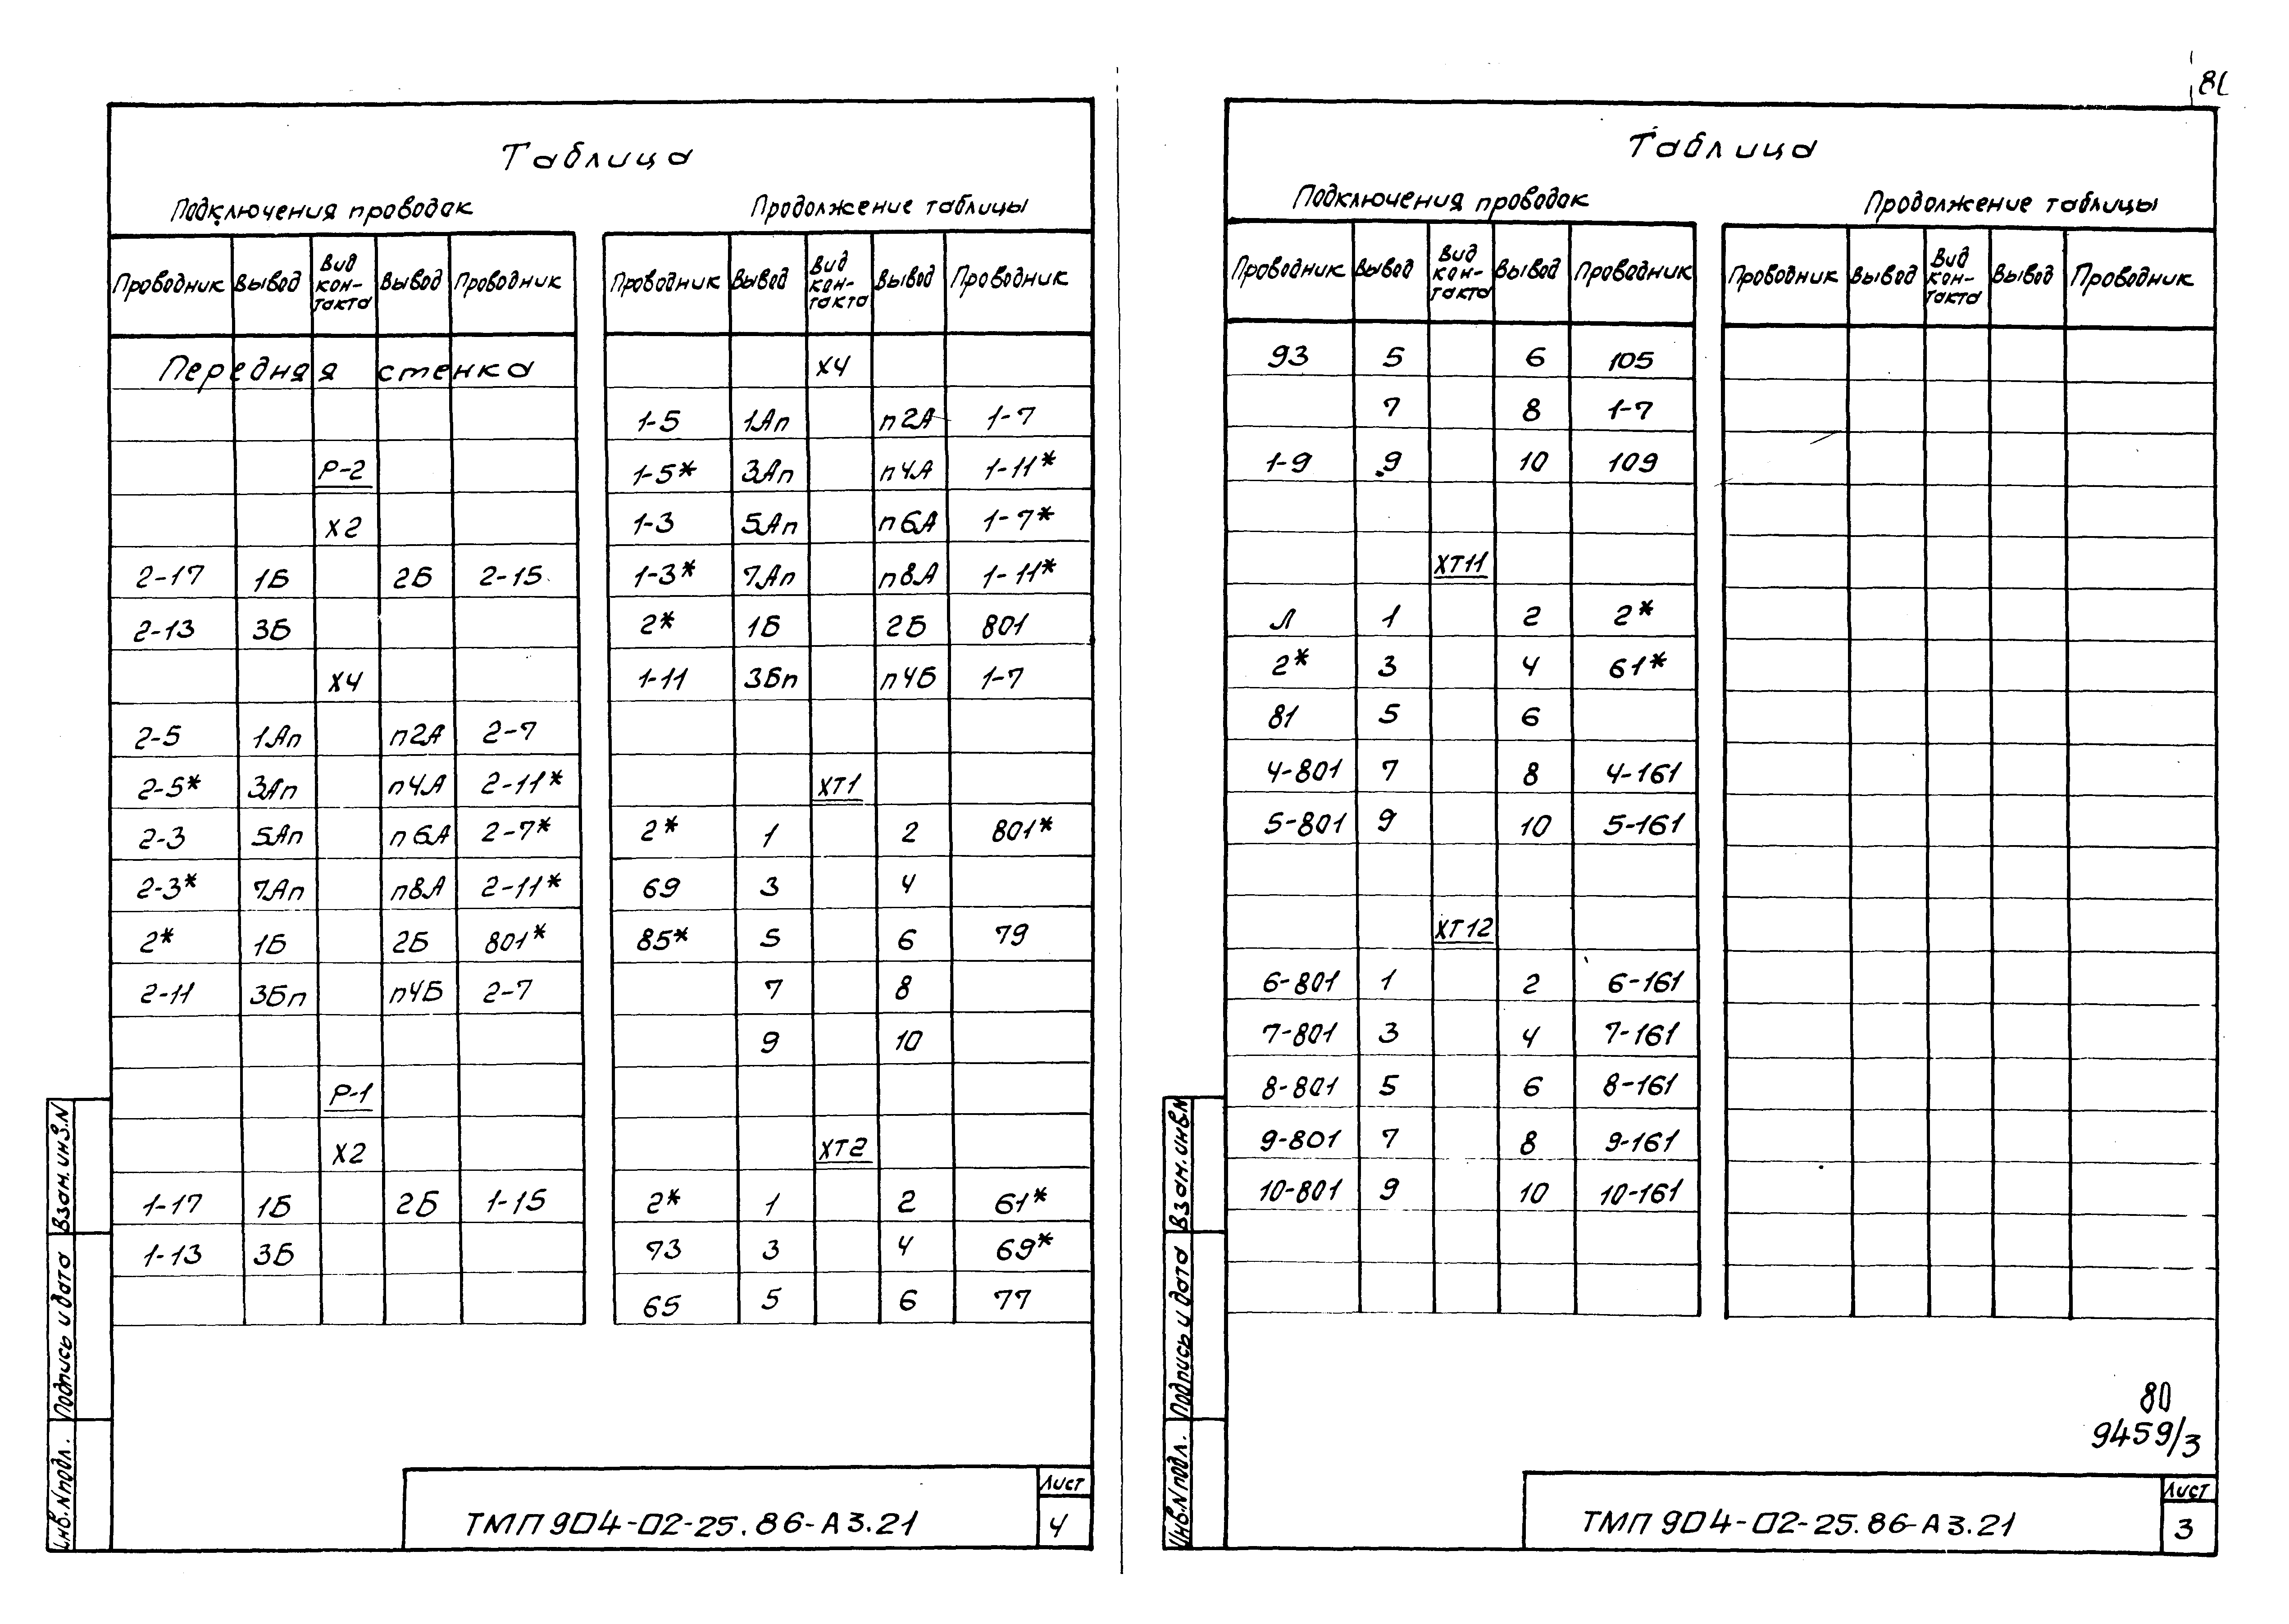 81
Таблица
Подключения проводок
Продолжение таблицы
Проводник Вывод Вид кон-такта Вывод Проводник
Передняя стенка
Р-2
Х2
2-17 1Б 2Б 2-15
2-13 3Б
Х4
2-5 1Ап п2А 2-7
2-5* 3Ап п4А 2-11*
2-3 5Ап п6А 2-7*
2-3* 7Ап п8А 2-11*
2* 1Б 2Б 801*
2-11 3Бп п4Б 2-7
Р-1
Х2
1-17 1Б 2Б 1-15
1-13 3Б
Проводник Вывод Вид кон-такта Вывод Проводник
Х4
1-5 1Ап п2А 1-7
1-5* 3Ап п4А 1-11*
1-3 5Ап п6А 1-7*
1-3* 7Ап п8А 1-11*
2* 1Б 2Б 801
1-11 3Бп п4Б 1-7
ХТ1
2* 1 2 801*
69 3 4
85* 5 6 79
7 8
9 10
ХТ2
2* 1 2 61*
73 3 4 69*
65 5 6 77
Инв.N подл. Подпись и дата Взам.инв.N
ТМП 904-02-25.86-А3.21
Лист
4
Таблица
Подключения проводок
Продолжение таблицы
Проводник Вывод Вид кон-такта Вывод Проводник
93 5 6 105
7 8 1-7
1-9 9 10 109
ХТ11
Л 1 2 2*
2* 3 4 61*
81 5 6
4-801 7 8 4-161
5-801 9 10 5-161
ХТ12
6-801 1 2 6-161
7-801 3 4 7-161
8-801 5 6 8-161
9-801 7 8 9-161
10-801 9 10 10-161
Проводник Вывод Вид кон-такта Вывод Проводник
Инв.N подл. Подпись и дата Взам.инв.N
80
9459/3
ТМП 904-02-25.86-А3.21
Лист
3